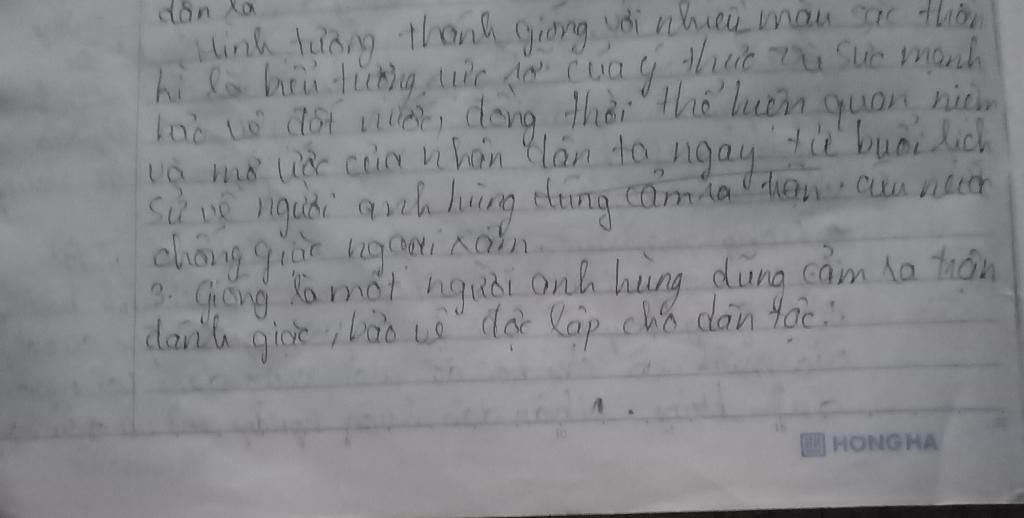 dân ta
Hình tượng thánh gióng với nhiều màu sắc thần
kì là biểu tượng rực rỡ của ý thức và sức mạnh
bảo vệ đất nước, đồng thời thể luện quan niệm
và mơ ước của nhân dân ta ngay từ buổi lịch
sử về người anh hùng dũng cảm ra trận cứu nước
chống giặc ngoại xâm.
3. Gióng là một người anh hùng dũng cảm ra trận
đánh giặc, bảo vệ độc lập cho dân tộc.
HONG HA